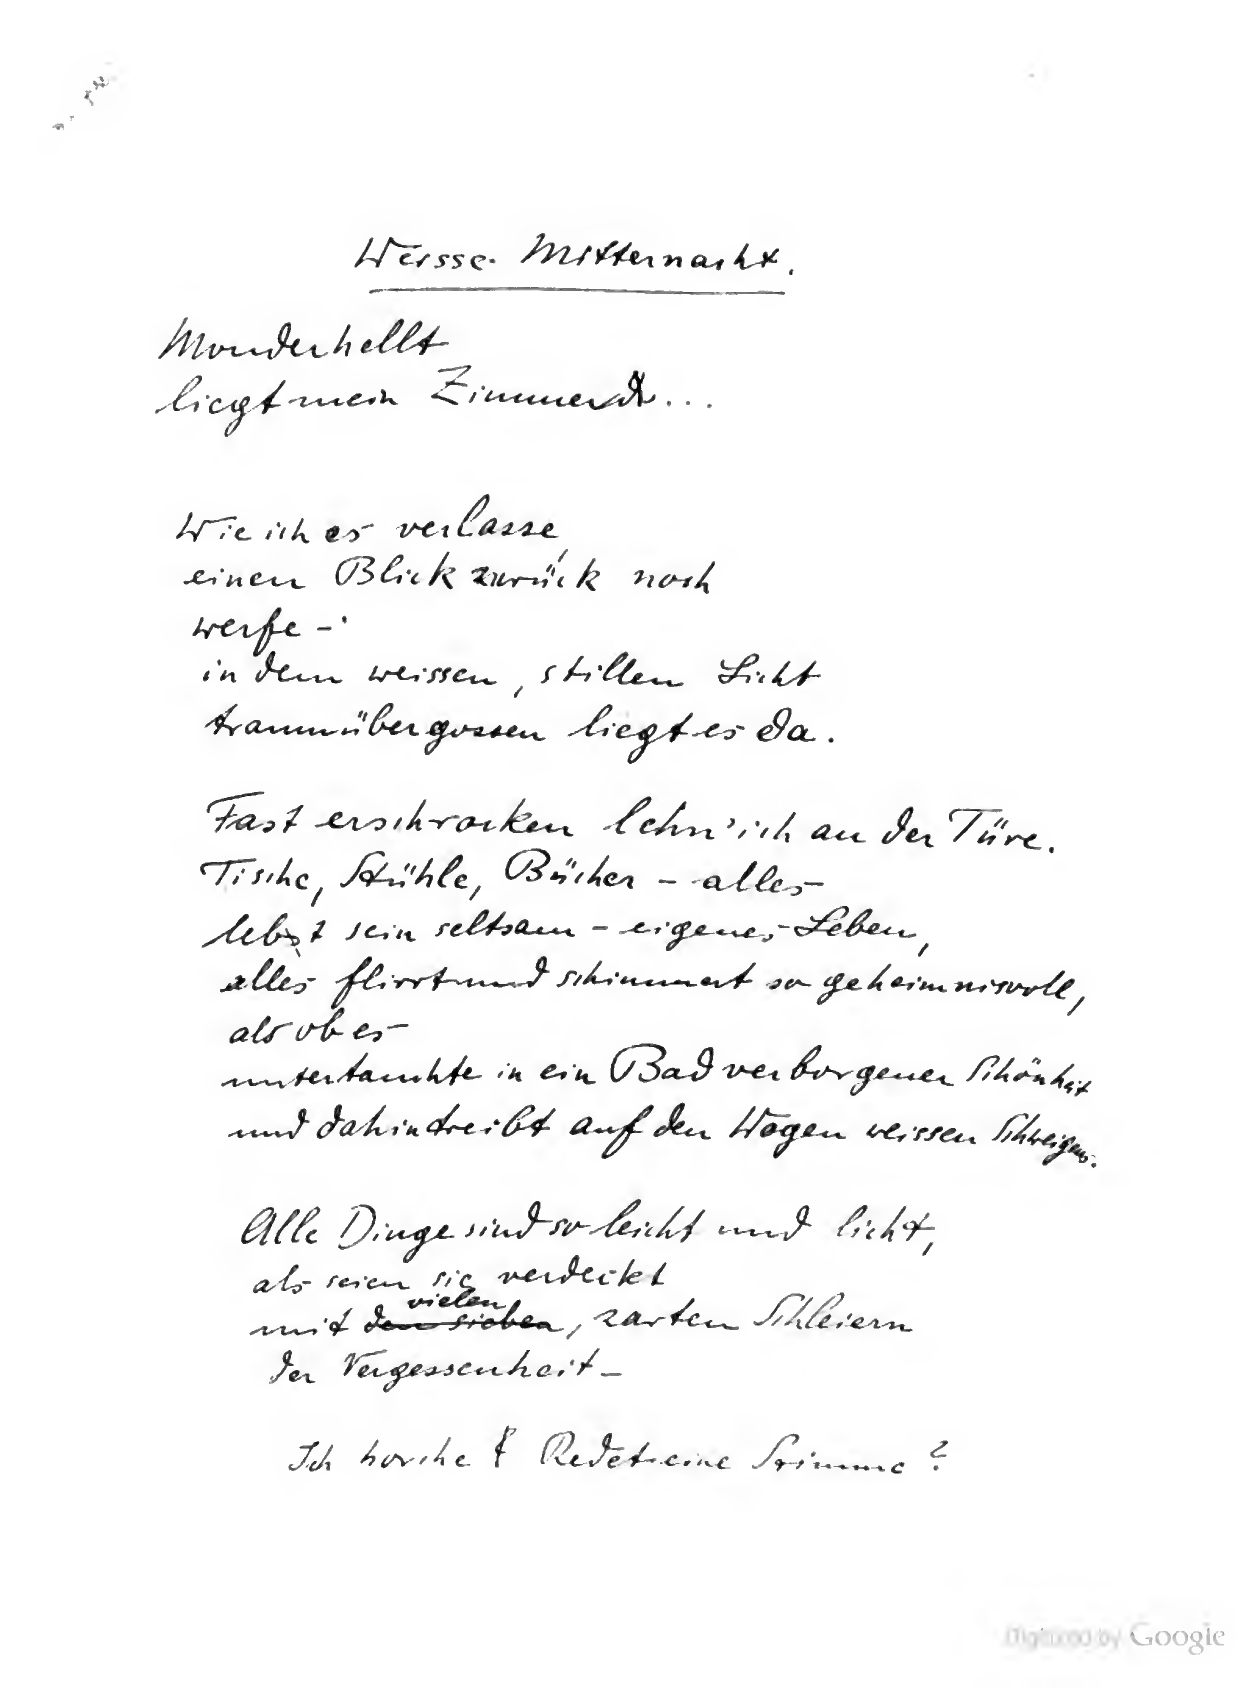 Weisse Mitternacht.
Monderhellt
liegt mein Zimmer da...
Wie ich es verlasse
einen Blick zurück noch
werfe –
in dem weissen, stillen Licht
traumübergossen liegt es da.
Fast erschrocken lehn' ich an der Türe.
Tische, Stühle, Bücher – alles
lebt sein seltsam – eigenes Leben,
alles flirrt und schimmert so geheimnisvoll,
als ob es
untertauchte in ein Bad verborgener Schönheit
und dahintreibt auf den Wogen weissen Schweigens.
Alle Dinge sind so leicht und licht,
als seien sie verdeckt
vielen
mit den sieben, zarten Schleiern
der Vergessenheit –
Ich horche! Redet eine Stimme?
Digitized by Google